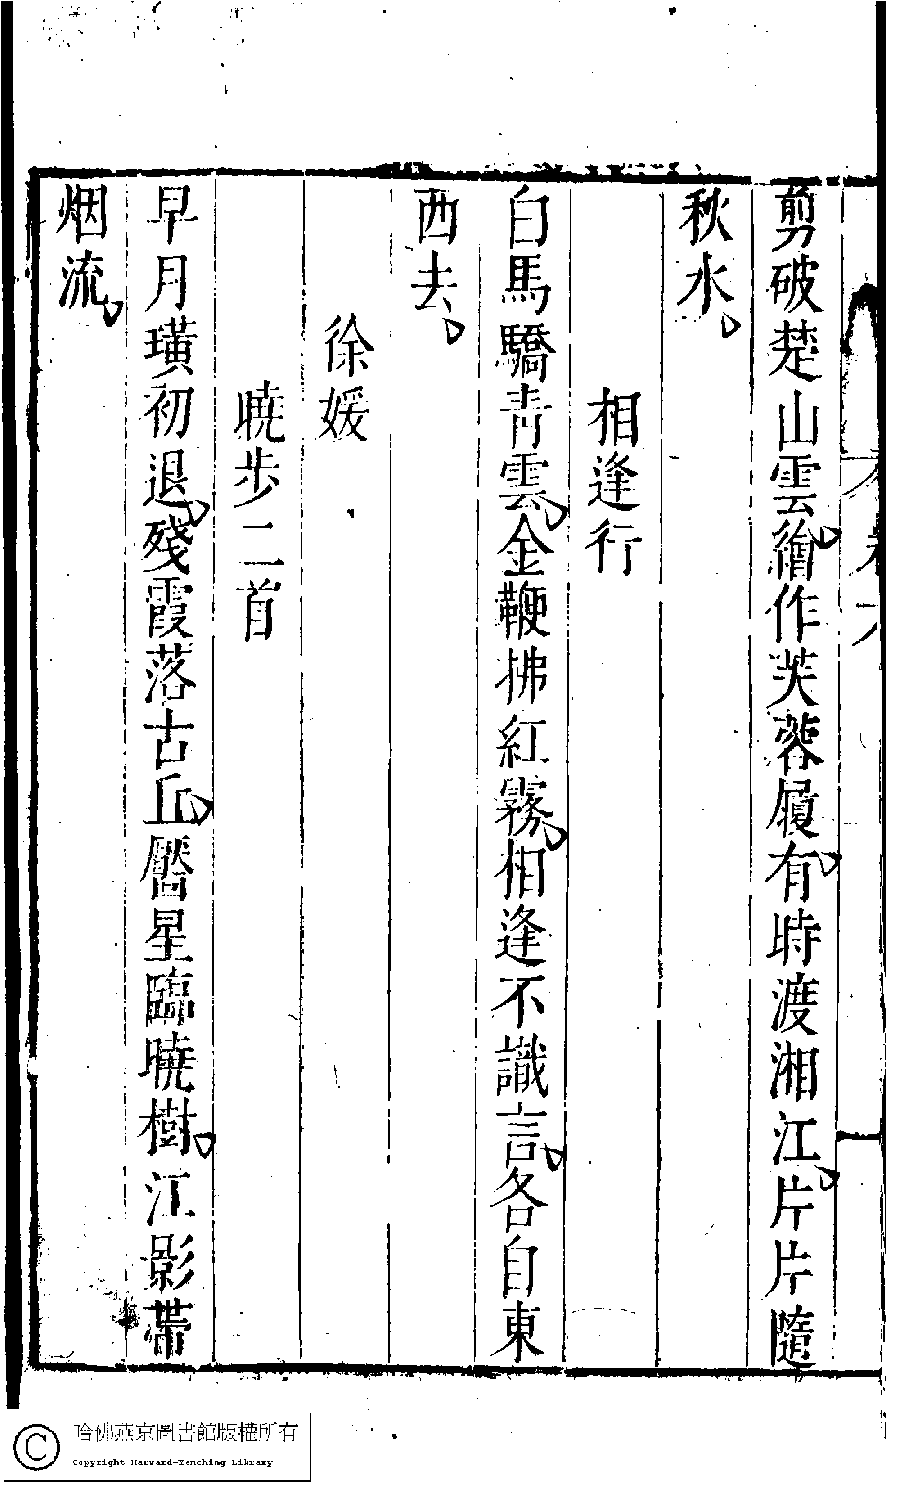 剪破楚山雲、繒作芙蓉履、有時渡湘江、片片隨
秋水、
相逢行
白馬驕青雲、金鞭拂紅霧、相逢不識言、各自東
西去、
徐媛
曉步二首
早月璜初退、殘霞落古丘、曆星臨曉樹、江影帶
烟流、
哈佛燕京圖書館版權所有
Copyright Harvard-Yenching Library